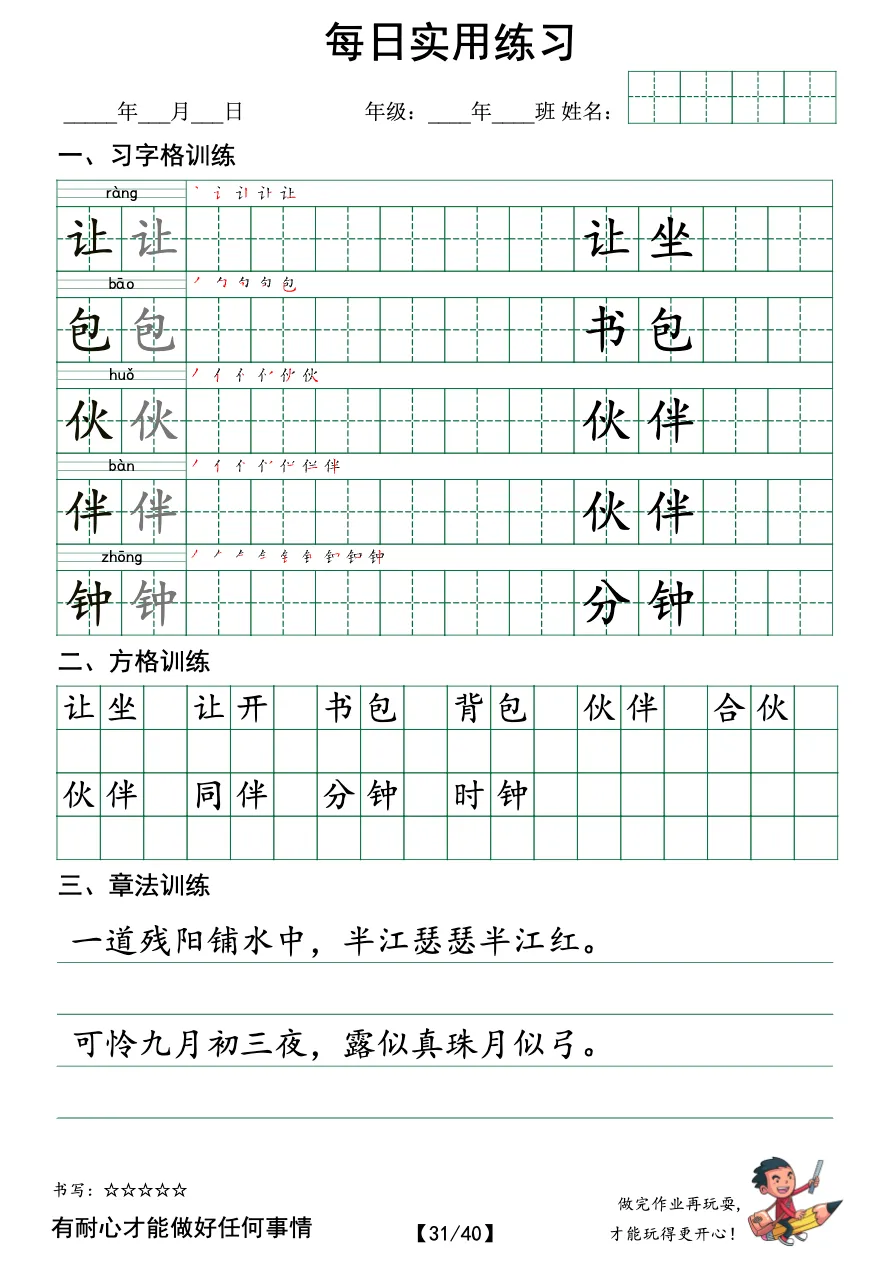 每日实用练习
_____年___月___日 年级：____年____班 姓名：
一、习字格训练
ràng
让 让 让 坐
bāo
包 包 书 包
huǒ
伙 伙 伙 伴
bàn
伴 伴 伙 伴
zhōng
钟 钟 分 钟
二、方格训练
让坐 让开 书包 背包 伙伴 合伙
伙伴 同伴 分钟 时钟
三、章法训练
一道残阳铺水中，半江瑟瑟半江红。
可怜九月初三夜，露似真珠月似弓。
书写：☆☆☆☆☆
有耐心才能做好任何事情
【31/40】
做完作业再玩耍，
才能玩得更开心！